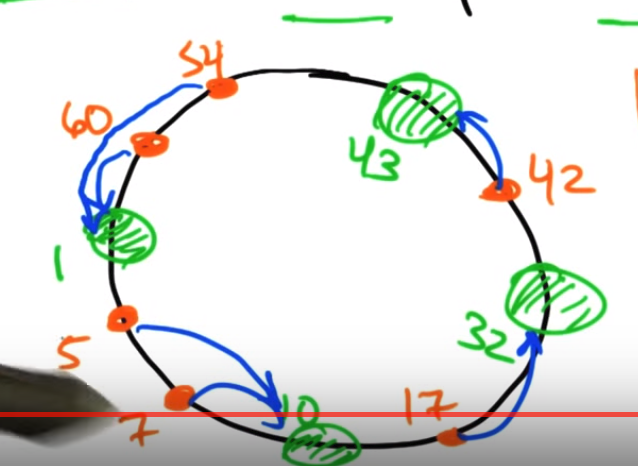 54
60
43
42
1
32
5
10
17
7